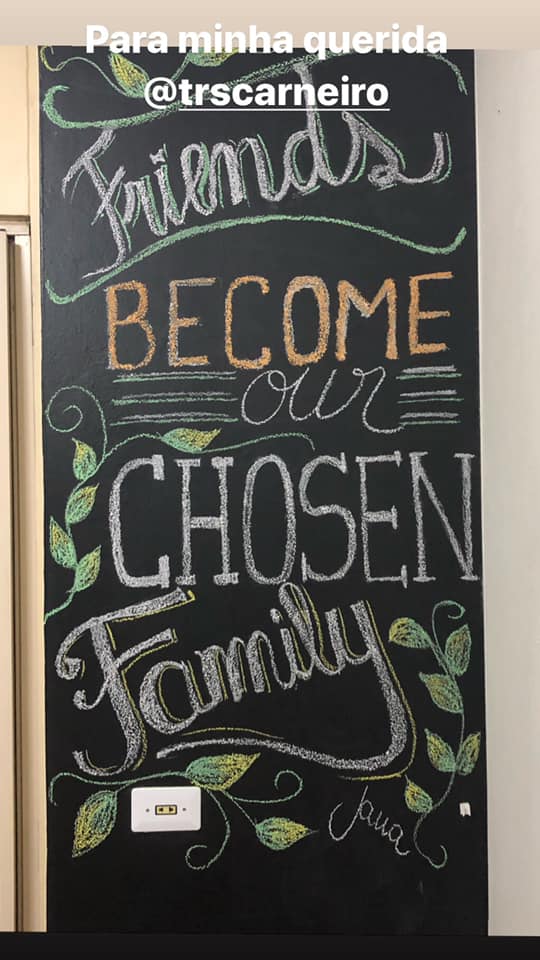 Para minha querida
@trscarneiro
Friends
BECOME
our
CHOSEN
Family
Jana